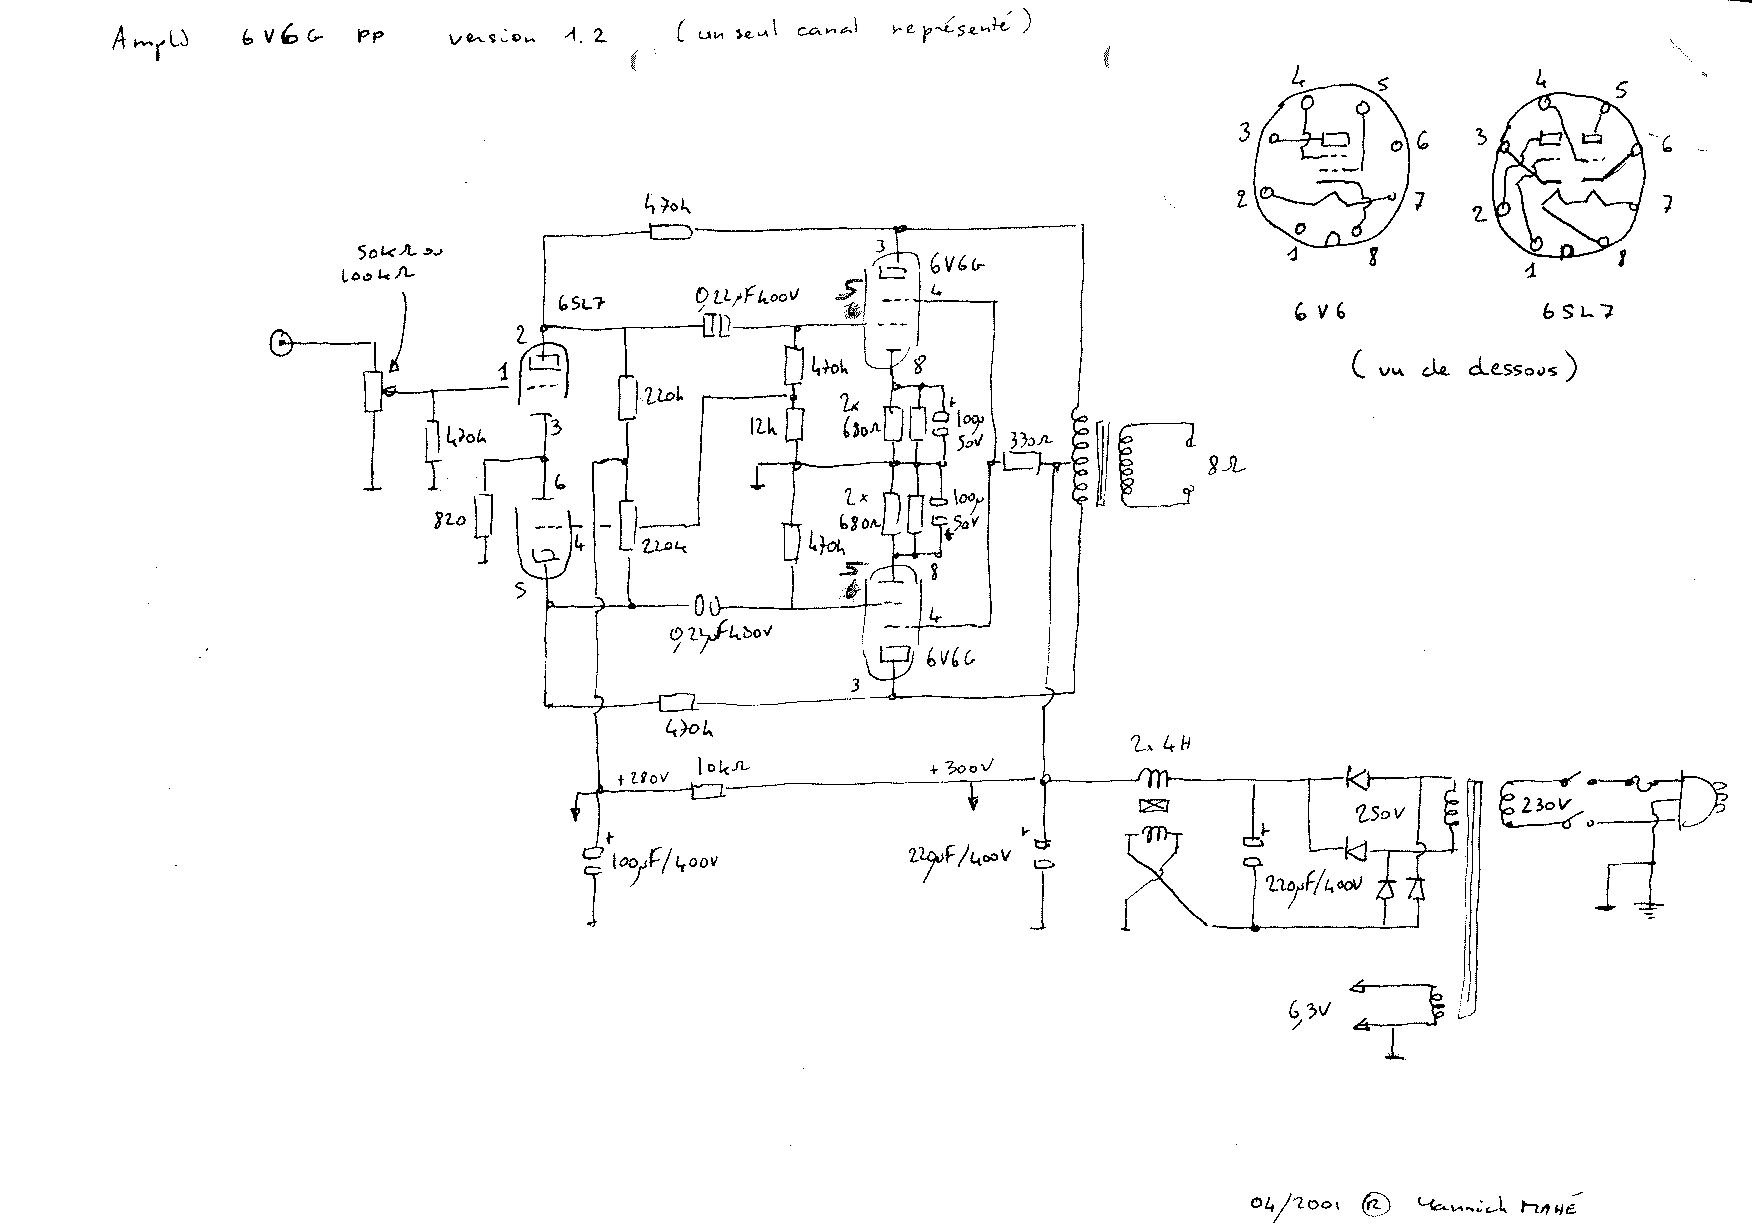 Ampli 6V6G PP version 1.2 (un seul canal représenté)
4 5
3 6
2 7
1 8
6V6
4 5
3 6
2 7
1 8
6SL7
(vu de dessous)
470k
50kΩ ou
100kΩ
6SL7
0,22µF 400V
3
6V6G
5
4
8
2
1
3
470k
220k
470k
12k
2x
680Ω
100µ
50V
+
330Ω
8Ω
6
820
4
5
220k
470k
2x
680Ω
100µ
50V
+
5
8
4
0,22µF 400V
6V6G
3
470k
+280V
10kΩ
+300V
2x 4H
250V
230V
+
100µF/400V
+
220µF/400V
+
220µF/400V
6,3V
04/2001 ® Yannick MAHÉ